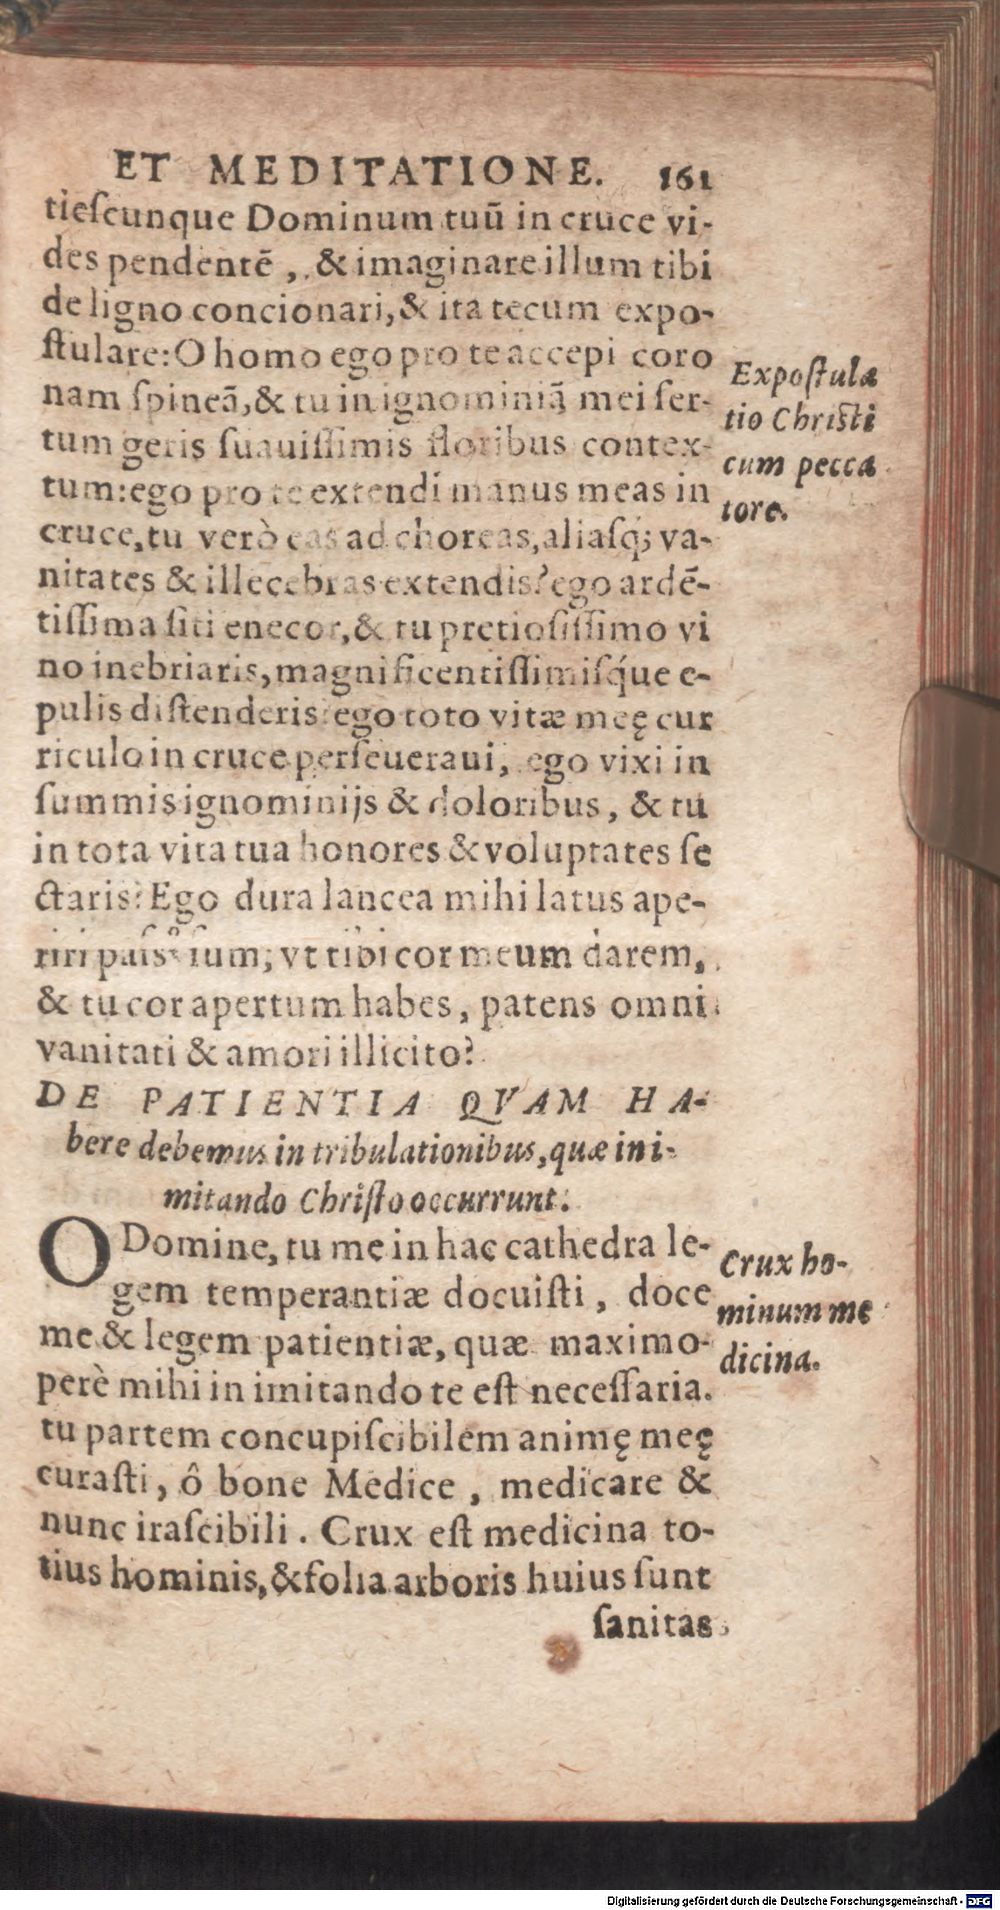 ET MEDITATIONE. 161
tieſcunque Dominum tuū in cruce vi-
des pendentē, & imaginare illum tibi
de ligno concionari, & ita tecum expo-
ſtulare: O homo ego pro te accepi coro
nam ſpineā, & tu in ignominiā mei ſer-
tum geris ſuauiſſimis floribus contex-
tum: ego pro te extendi manus meas in
cruce, tu verò eas ad choreas, aliaſq; va-
nitates & illecebras extendis? ego ardē-
tiſſima ſiti enecor, & tu pretioſiſſimo vi
no inebriaris, magnificentiſſimiſq́ue e-
pulis diſtenderis: ego toto vitæ meę cur
riculo in cruce perſeueraui, ego vixi in
ſummis ignominijs & doloribus, & tu
in tota vita tua honores & voluptates ſe
ctaris? Ego dura lancea mihi latus ape-
riri ſum; vt tibi cor meum darem,
& tu cor apertum habes, patens omni
vanitati & amori illicito?
Expoſtula
tio Chriſti
cum pecca
tore.
DE PATIENTIA QVAM HA-
bere debemus in tribulationibus, quæ in i-
mitando Chriſto occurrunt.
O Domine, tu me in hac cathedra le-
gem temperantiæ docuiſti, doce
me & legem patientiæ, quæ maximo-
perè mihi in imitando te eſt neceſſaria.
tu partem concupiſcibilem animę meę
curaſti, ô bone Medice, medicare &
nunc iraſcibili. Crux eſt medicina to-
tius hominis, & folia arboris huius ſunt
ſanitas
Crux ho-
minum me
dicina.
Digitalisierung gefördert durch die Deutsche Forschungsgemeinschaft - DFG